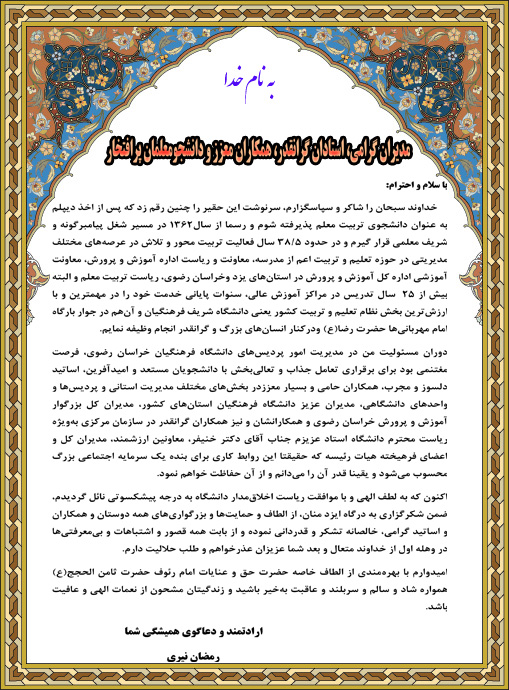 به نام خدا
مدیران گرامی، استادان گرانقدر، همکاران معزز و دانشجومعلمان پرافتخار
با سلام و احترام:
خداوند سبحان را شاکر و سپاسگزارم، سرنوشت این حقیر را چنین رقم زد که پس از اخذ دیپلم
به عنوان دانشجوی تربیت معلم پذیرفته شوم و رسما از سال۱۳۶۲ در مسیر شغل پیامبرگونه و
شریف معلمی قرار گیرم و در حدود ۳۸/۵ سال فعالیت تربیت محور و تلاش در عرصه‌های مختلف
مدیریتی در حوزه تعلیم و تربیت اعم از مدرسه، معاونت و ریاست اداره آموزش و پرورش، معاونت
آموزشی اداره کل آموزش و پرورش در استان‌های یزد وخراسان رضوی، ریاست تربیت معلم و البته
بیش از ۲۵ سال تدریس در مراکز آموزش عالی، سنوات پایانی خدمت خود را در مهمترین و با
ارزش‌ترین بخش نظام تعلیم و تربیت کشور یعنی دانشگاه شریف فرهنگیان و آن‌هم در جوار بارگاه
امام مهربانی‌ها حضرت رضا(ع) ودرکنار انسان‌های بزرگ و گرانقدر انجام وظیفه نمایم.
دوران مسئولیت من در مدیریت امور پردیس‌های دانشگاه فرهنگیان خراسان رضوی، فرصت
مغتنمی بود برای برقراری تعامل جذاب و تعالی‌بخش با دانشجویان مستعد و امیدآفرین، اساتید
دلسوز و مجرب، همکاران حامی و بسیار معزز‌در بخش‌های مختلف مدیریت استانی و پردیس‌ها و
واحدهای دانشگاهی، مدیران عزیز دانشگاه فرهنگیان استان‌های کشور، مدیران کل بزرگوار
آموزش و پرورش خراسان رضوی و همکارانشان و نیز همکاران گرانقدر در سازمان مرکزی به‌ویژه
ریاست محترم دانشگاه استاد عزیزم جناب آقای دکتر خنیفر، معاونین ارزشمند، مدیران کل و
اعضای فرهیخته هیات رئیسه که حقیقتا این روابط کاری برای بنده یک سرمایه اجتماعی بزرگ
محسوب می‌شود و یقینا قدر آن را می‌دانم و از آن حفاظت خواهم نمود.
اکنون که به لطف الهی و با موافقت ریاست اخلاق‌مدار دانشگاه به درجه پیشکسوتی نائل گردیدم،
ضمن شکرگزاری به درگاه ایزد منان، از الطاف و حمایت‌ها و بزرگواری‌های همه دوستان و همکاران
و اساتید گرامی، خالصانه تشکر و قدردانی نموده و از بابت همه قصور و اشتباهات و بی‌معرفتی‌ها
در وهله اول از خداوند متعال و بعد شما عزیزان عذرخواهم و طلب حلالیت دارم.
امیدوارم با بهره‌مندی از الطاف خاصه حضرت حق و عنایات امام رئوف حضرت ثامن الحجج(ع)
همواره شاد و سالم و سربلند و عاقبت به‌خیر باشید و زندگیتان مشحون از نعمات الهی و عافیت
باشد.
ارادتمند و دعاگوی همیشگی شما
رمضان نیری